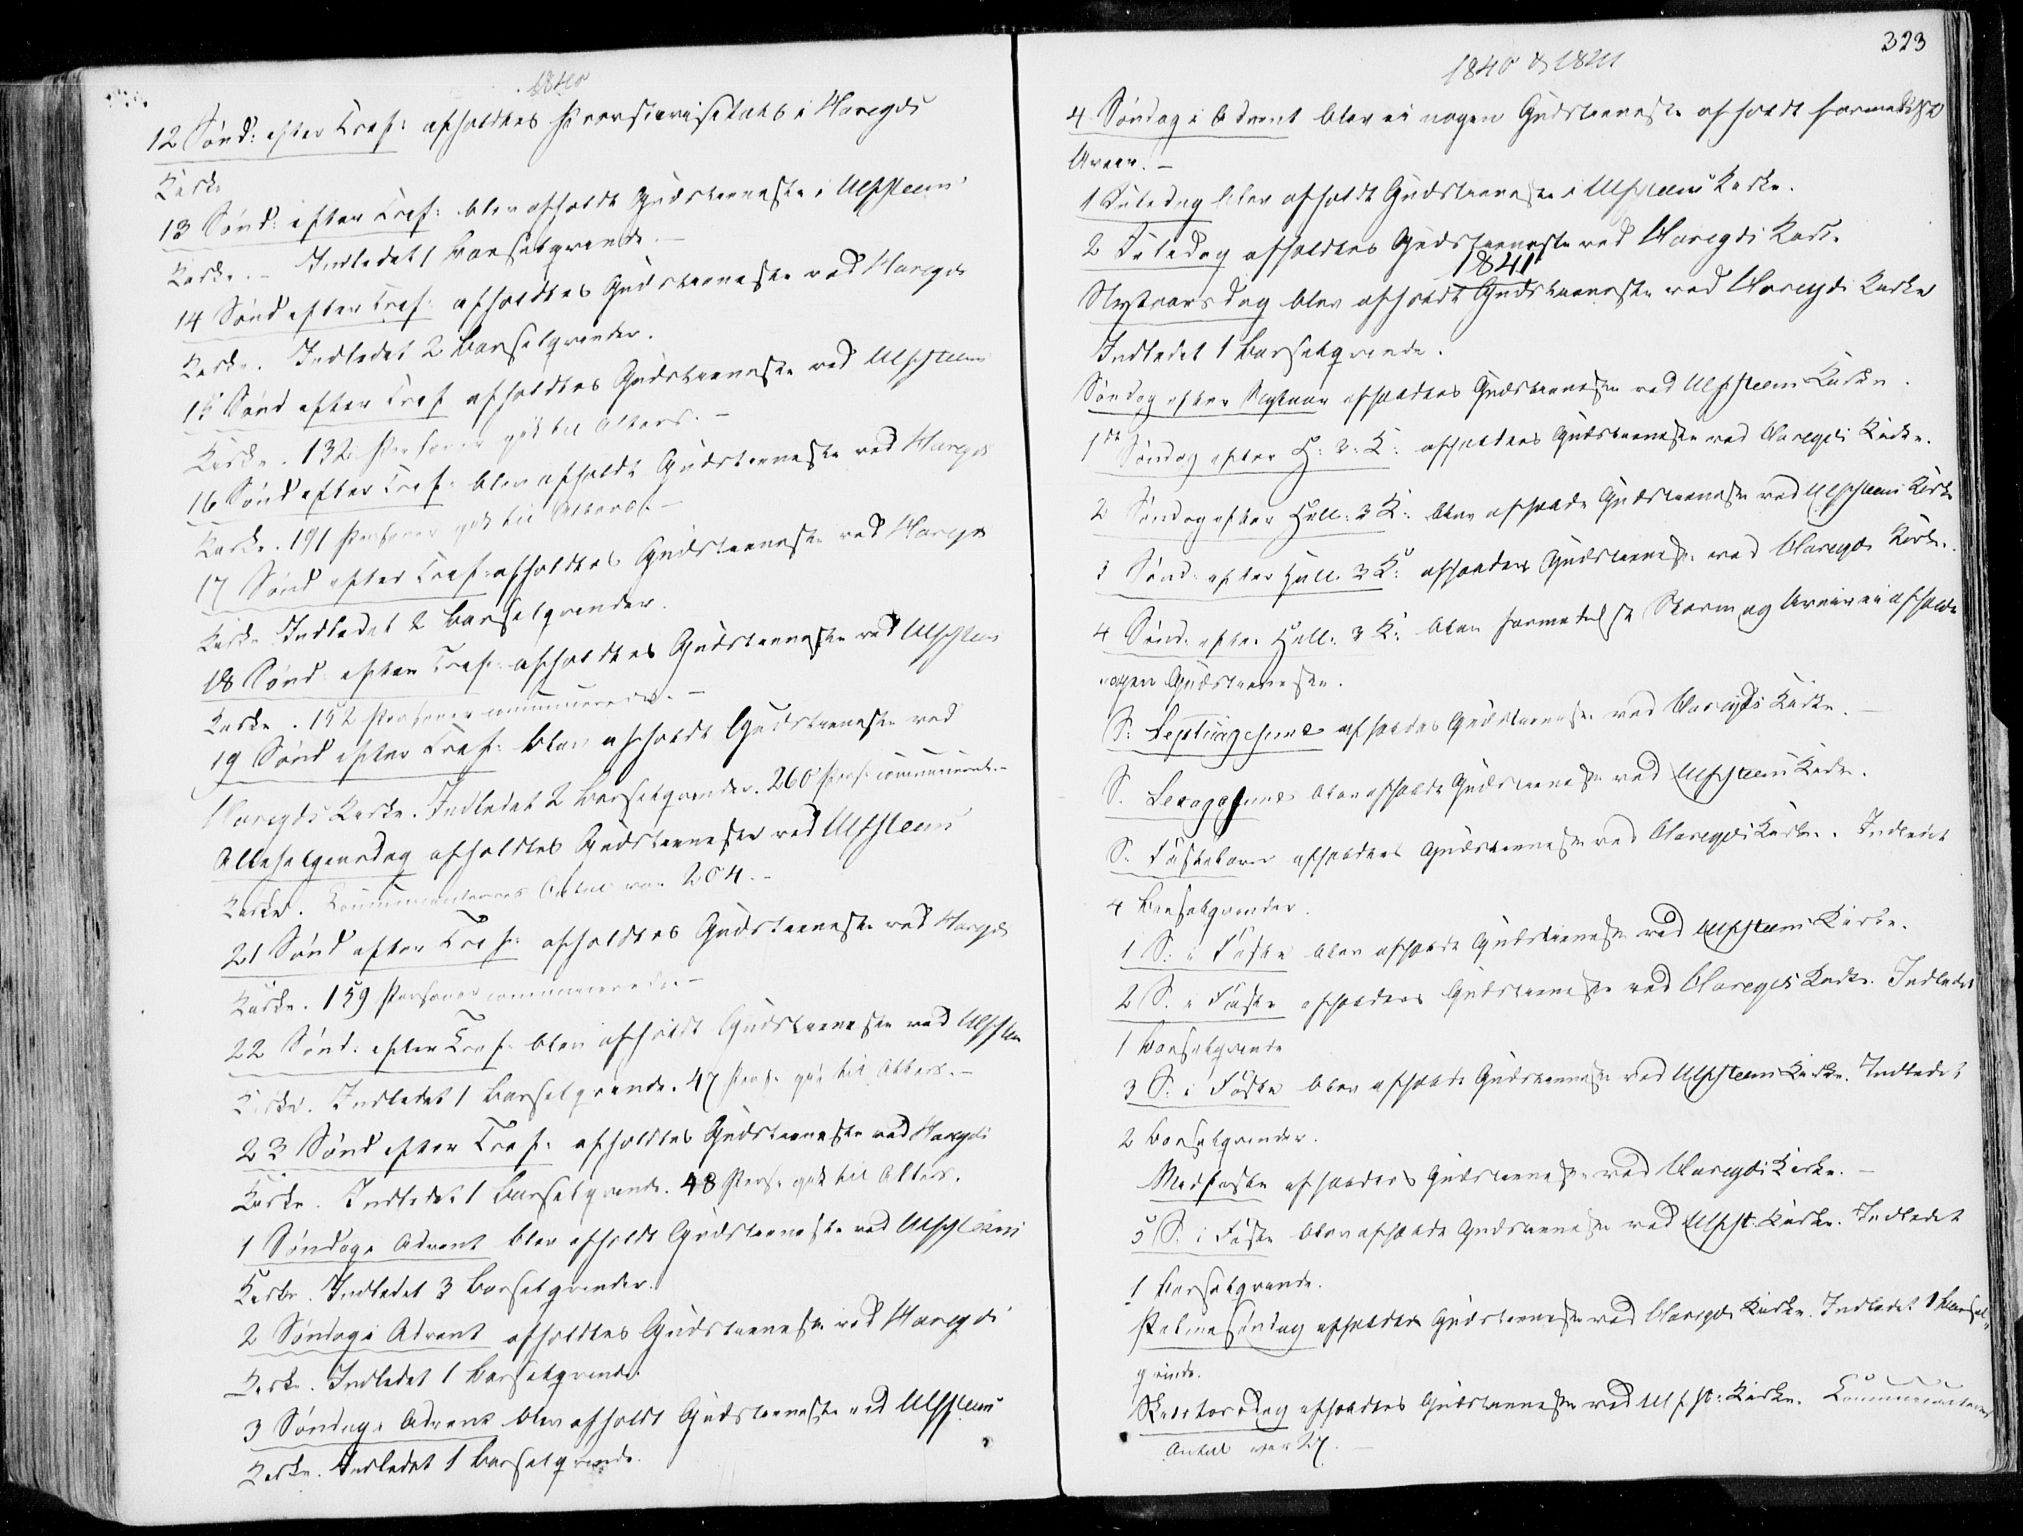 1840
12 Sønd: efter Tref: afholdtes Provstevisitats i Hareyds
Kirke
13 Sønd: efter Tref: blev afholdt Gudstieneste i Ulfsteens
Kirke. – Indledet 1 Barselqvinde. –
14 Sønd efter Tref: afholdtes Gudstieneste ved Hareyds
Kirke. Indledet 2 Barselqvinder.
15 Sønd efter Tref afholdtes Gudstieneste ved Ulfsteens
Kirke. 132 Personer gik til Alters. –
16 Sønd efter Tref: blev afholdt Gudstieneste ved Hareyds
Kirke. 191 Personer gik til Alters. –
17 Sønd efter Tref: afholdtes Gudstieneste ved Hareyds
Kirke Indledet 2 Barselqvinder.
18 Sønd: efter Tref: afholdtes Gudstieneste ved Ulfsteens
Kirke. 152 Personer communicerede. –
19 Sønd efter Tref: blev afholdt Gudstieneste ved
Hareyds Kirke. Indledet 2 Barselqvinder. 260 Pers: communicerede. –
Allehelgensdag afholdtes Gudstieneste ved Ulfsteens
Kirke. Communicanternes Antal var 204. –
21 Sønd efter Tref: afholdtes Gudstieneste ved Hareyds
Kirke. 159 Personer communicerede. –
22 Sønd: efter Tref: blev afholdt Gudstieneste ved Ulfsteens
Kirke. Indledet 1 Barselqvinde. 47 Pers: gik til Alters. –
23 Sønd efter Tref: afholdtes Gudstieneste ved Hareyds
Kirke. Indledet 1 Barselqvinde. 48 Pers: gik til Alters.
1 Søndag i Advent blev afholdt Gudstieneste ved Ulfsteens
Kirke. Indledet 3 Barselqvinder.
2 Søndag i Advent afholdtes Gudstieneste ved Hareyds
Kirke. Indledet 1 Barselqvinde.
3 Søndag i Advent blev afholdt Gudstieneste ved Ulfsteens
Kirke. Indledet 1 Barselqvinde.
323
1840 & 1841
4 Søndag i Advent blev ei nogen Gudstieneste afholdt formedelst
Uveir. –
1 Juledag blev afholdt Gudstieneste i Ulfsteens Kirke.
2 Juledag afholdtes Gudstieneste ved Hareyds Kirke
1841
Nytaarsdag blev afholdt Gudstieneste ved Hareyds Kirke
Indledet 1 Barselqvinde.
Søndag efter Nytaar afholdtes Gudstieneste ved Ulfsteens Kirke.
1ste Søndag efter H: 3: K: afholdtes Gudstieneste ved Hareyds Kirke.
2 Søndag efter Hell: 3 K: blev afholdt Gudstieneste ved Ulfsteens Kirke
3 Sønd: efter Hell. 3 K: afholdtes Gudstieneste ved Hareyds Kirke.
4 Sønd. efter Hell: 3 K: blev formedelst Storm og Uveir ei afholdt
nogen Gudstieneste.
S: Septuagesima afholdtes Gudstieneste ved Hareyds Kirke. –
S. Sexagesima blev afholdt Gudstieneste ved Ulfsteens Kirke.
S. Fastelavn afholdtes Gudstieneste ved Hareyds Kirke. Indledet
4 Barselqvinder.
1 S: i Faste blev afholdt Gudstieneste ved Ulfsteens Kirke.
2 S. i Faste afholdtes Gudstieneste ved Hareyds Kirke. Indledet
1 Barselqvinde
3 S. i Faste blev afholdt Gudstieneste ved Ulfsteens Kirke. Indledet
2 Barselqvinder.
Midfaste afholdtes Gudstieneste ved Hareyds Kirke. –
5 S. i Faste blev afholdt Gudstieneste ved Ulfst: Kirke. Indledet
1 Barselqvinde.
Palmesøndag afholdtes Gudstieneste ved Hareyds Kirke. Indledet 1 Barsel-
qvinde.
Skiertorsdag afholdtes Gudstieneste ved Ulfst: Kirke. Communicanternes
Antal var 27. –